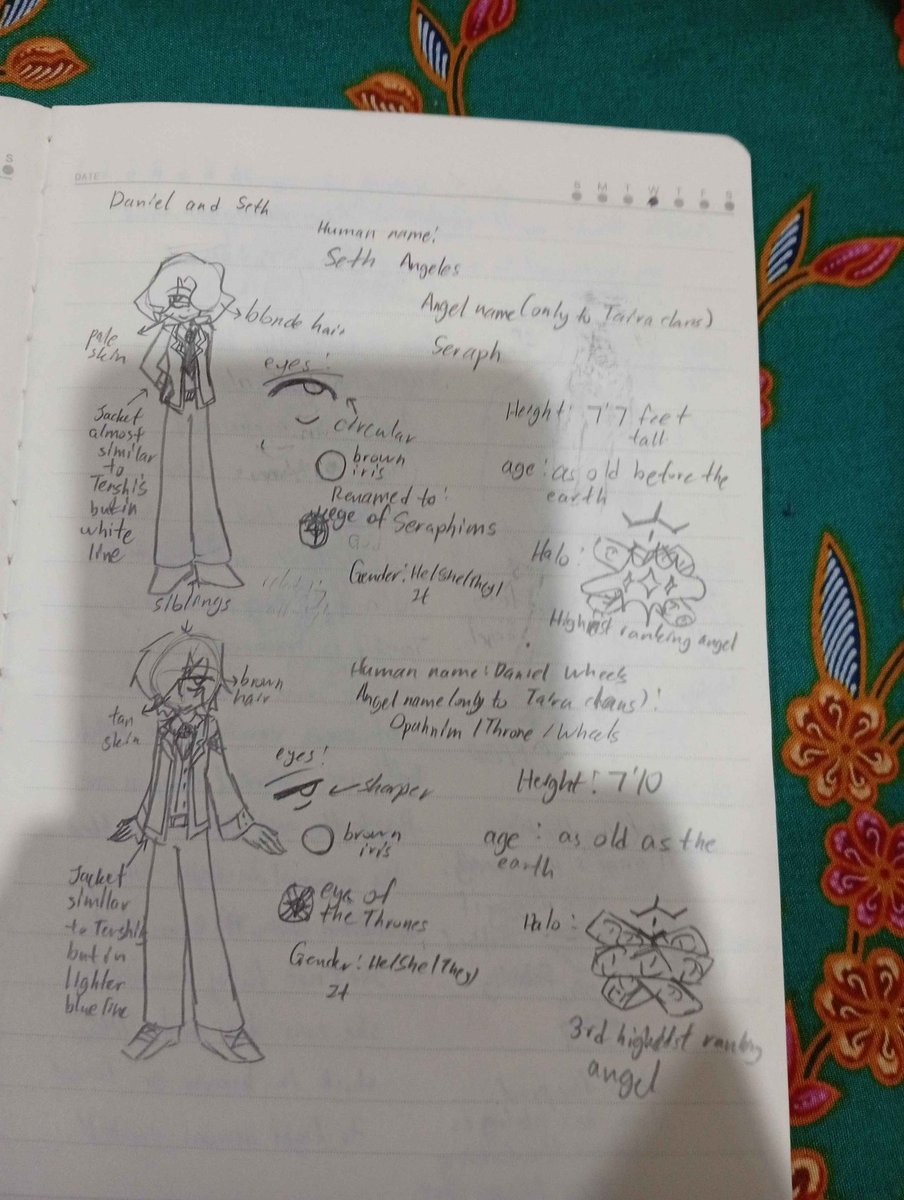 S
DATE
S M T W T F S
Daniel and Seth
Human name:
Seth Angeles
Angel name (only to Taira clans)
Seraph
blonde hair
pale
skin
eyes:
circular
brown
iris
Height: 7'7 feet
tall
age: as old before the
earth
Jacket
almost
similar
to
Tershi's
but in
white
line
Renamed to:
eye of Seraphims
Gender: He/She/They/
It
Halo:
Highest ranking angel
siblings
Human name: Daniel Wheels
Angel name (only to Taira clans):
Opahnim / Throne / Wheels
brown
hair
tan
skin
eyes:
sharper
brown
iris
Height: 7'10
age: as old as the
earth
Jacket
similar
to Tershi's
but in
lighter
blue line
eye of
the Thrones
Gender: He/She/They/
It
Halo:
3rd highest ranking
angel